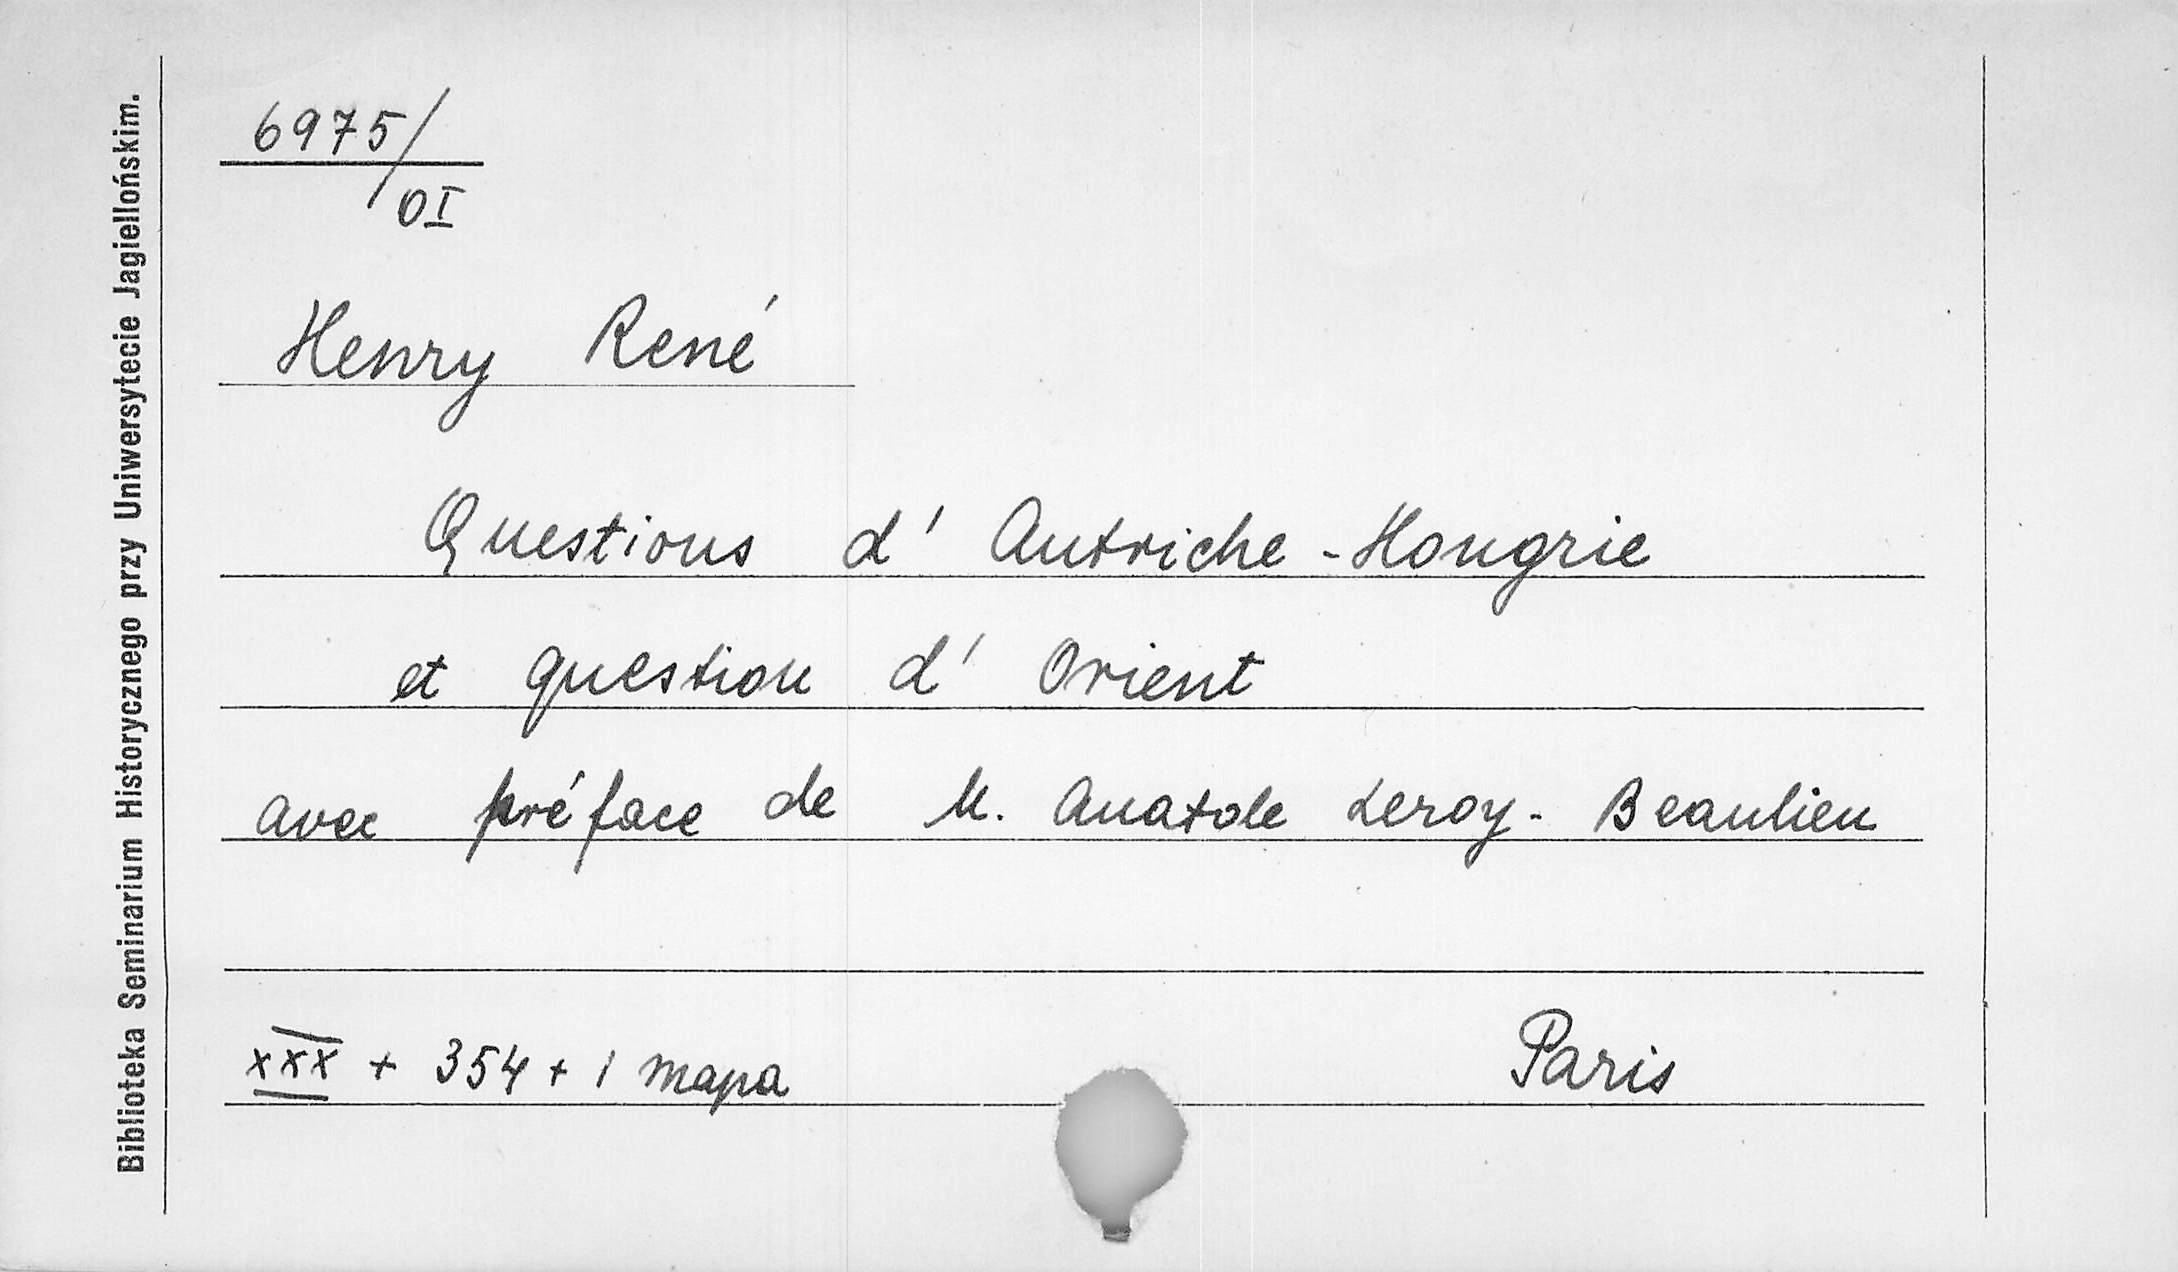 Biblioteka Seminarium Historycznego przy Uniwersytecie Jagiellońskim.
6975/
OI
Henry René
Questions d' Autriche - Hongrie
et question d' Orient
avec préface de M. Anatole Leroy - Beaulieu
XXX + 354 + 1 mapa
Paris